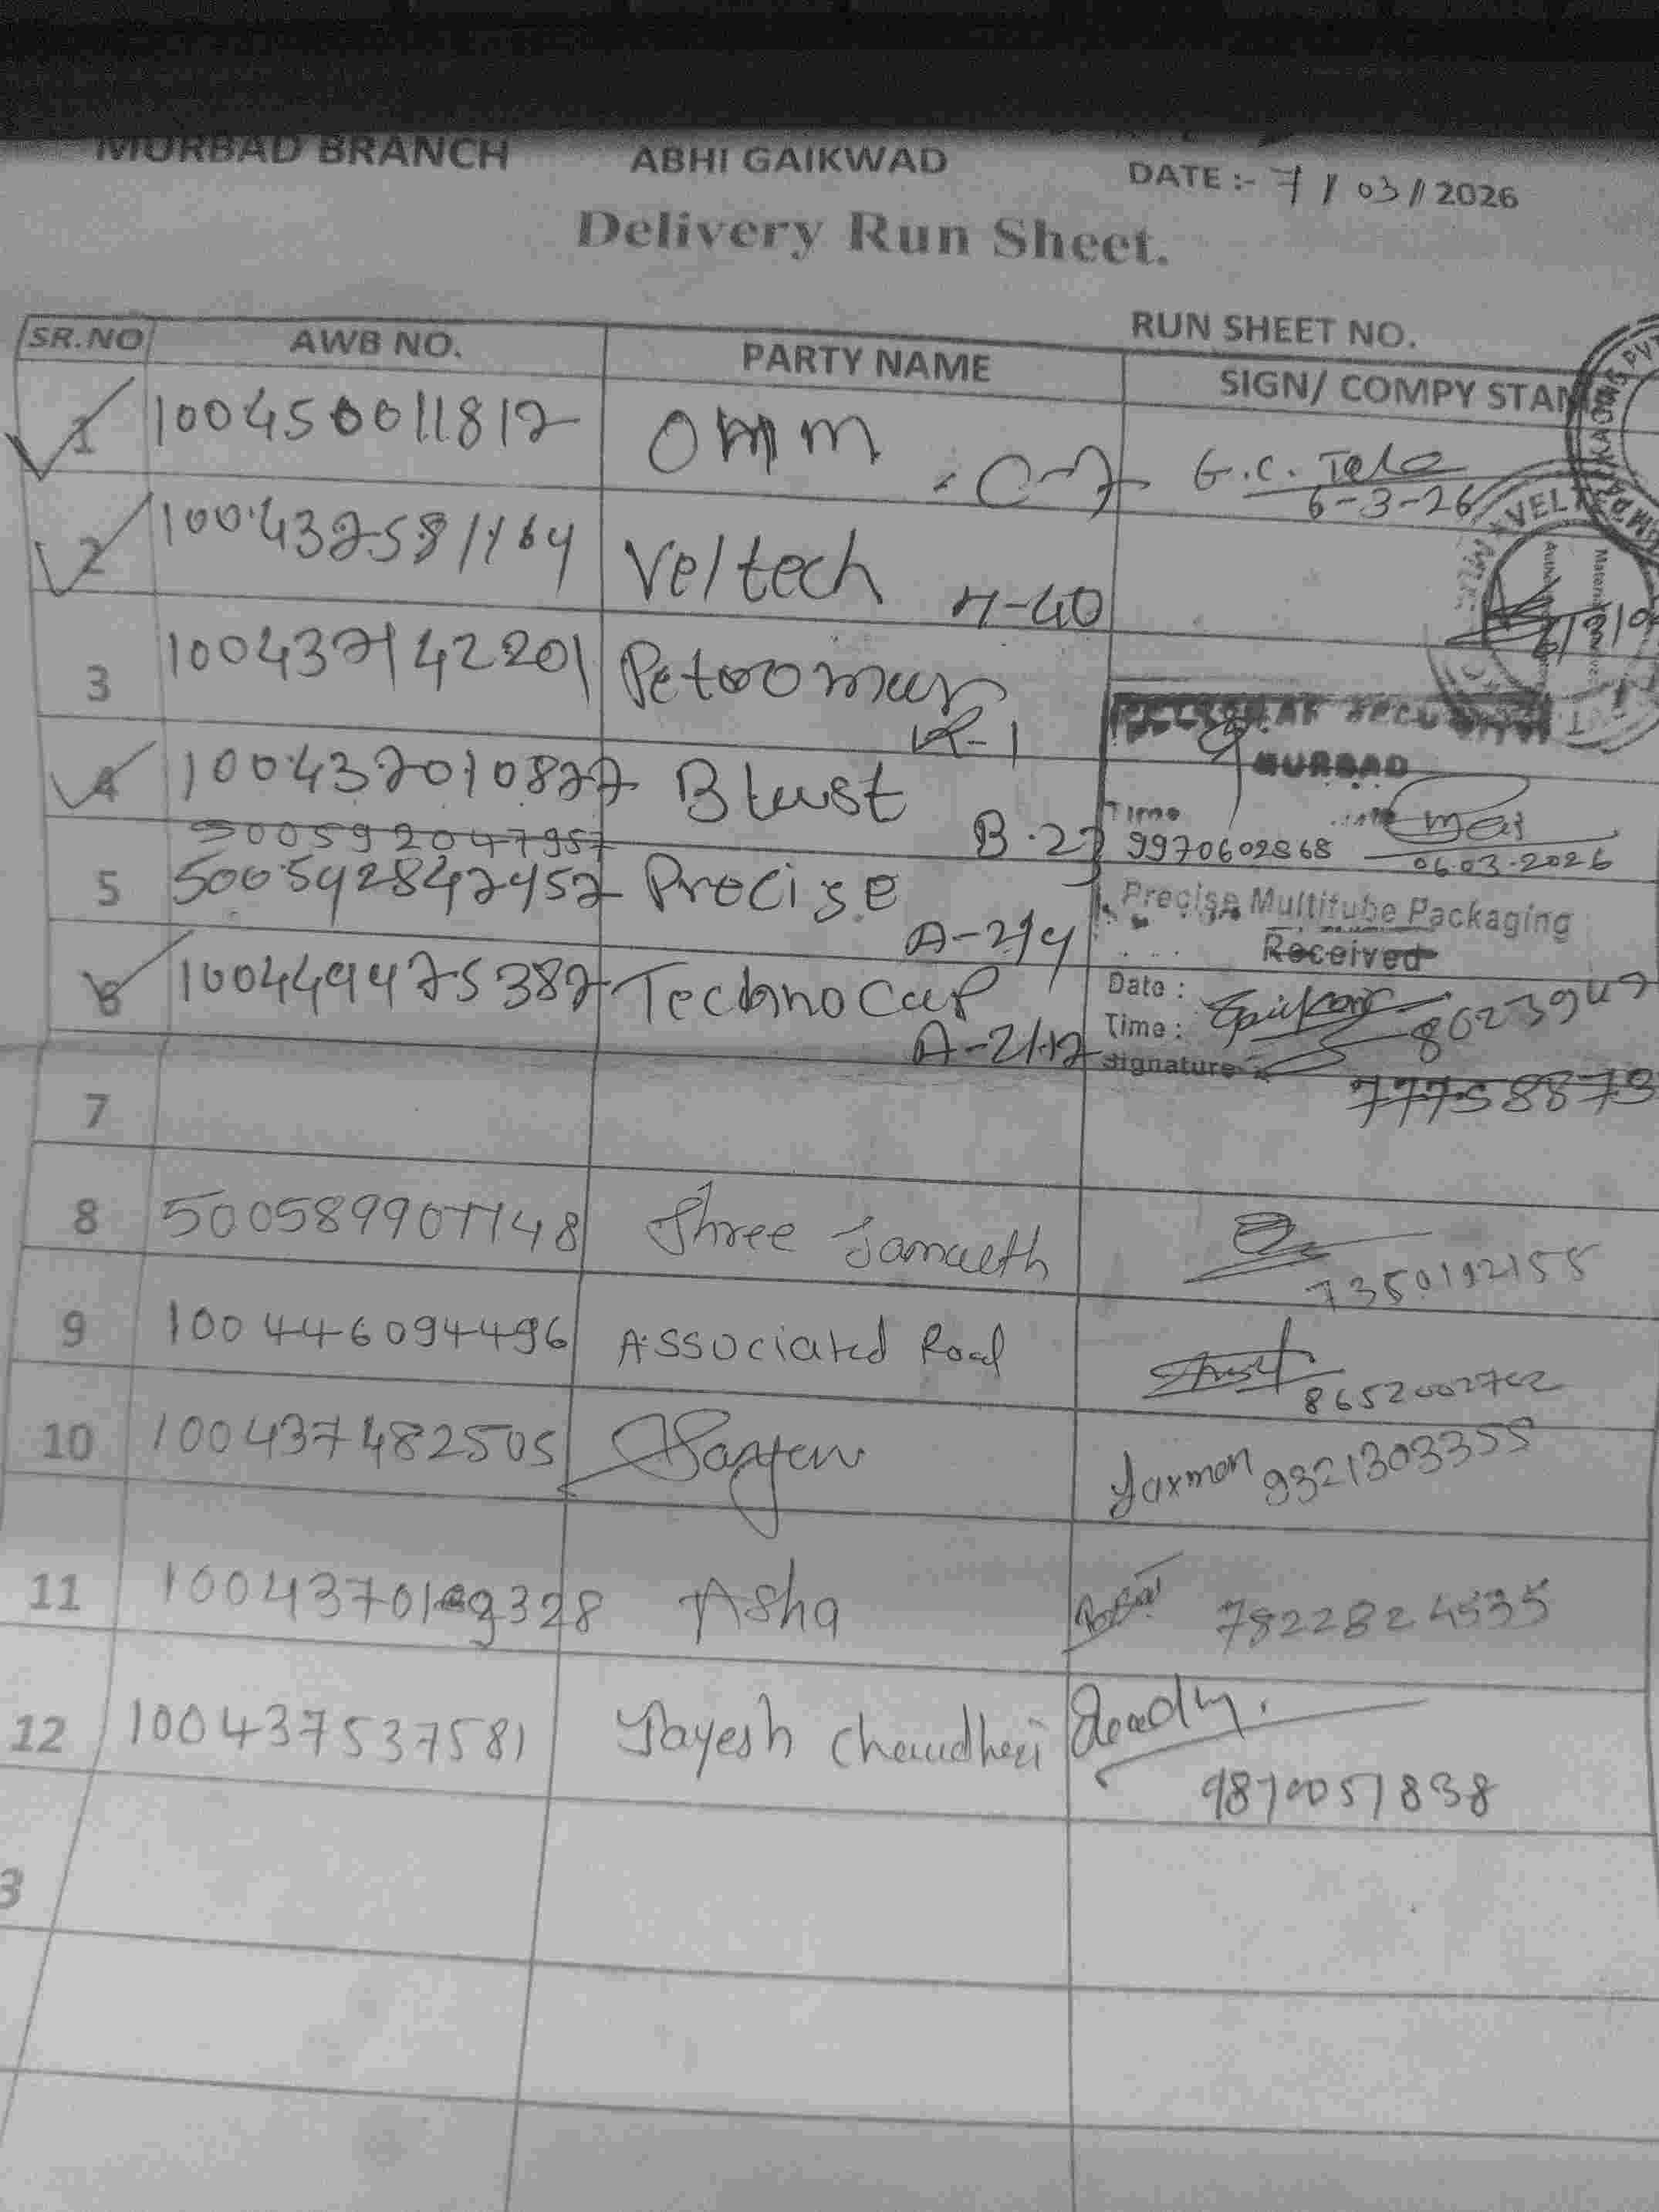 MURBAD BRANCH ABHI GAIKWAD DATE :- 7 / 03 // 2026
Delivery Run Sheet.
RUN SHEET NO.
SR.NO AWB NO. PARTY NAME SIGN/ COMPY STAM
1 100450011812 Omm .C-7 G.C. Tele
6-3-26
2 Veltech H-40
VEL
3 100437142201 Petromar K-1
MURBAD
4 100437010827 Blust B.27
Time
9970602868 06.03.2026
500592047957
5 500592842952 Precise A-214
Precise Multitube Packaging
Received
6 100449475387 Technocap A-2/12
Date :
Time :
Signature
77758873
7
8 500589907148 Shree Samarth
7350192155
9 100446094496 Associated Road
8652002702
10 100437482505
Laxman 9321303355
11 Asha
7822824535
12 100437537581 Jayesh Chaudhari
9870051838
3